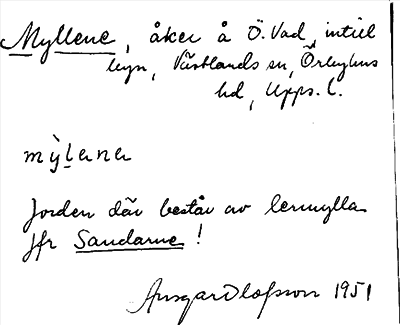 Myllene, åker å Ö. Vad, intill
byn, Västlands sn, Örbyhus
hd, Upps. l.
mỳlena
Jorden där består av lermylla
Jfr Sandarne!
Ansgar Olofsson 1951